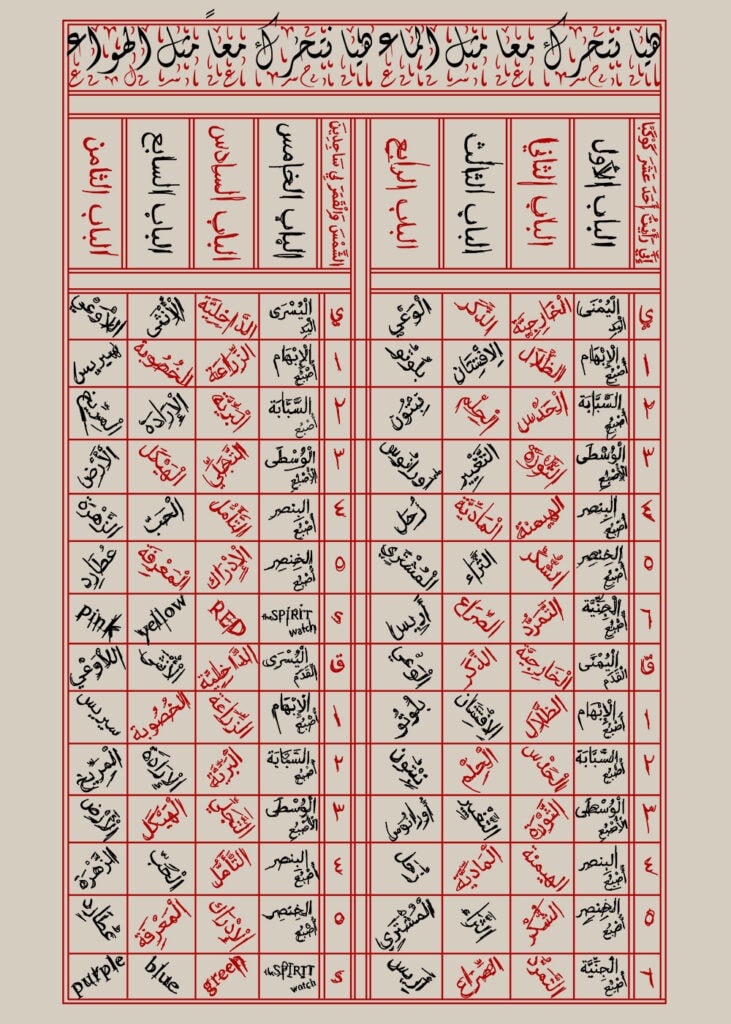 هيا نتحرك معا مثل الماء هيا نتحرك معاً مثل الهواء
إِنِّي رَأَيْتُ أَحَدَ عَشَرَ كَوْكَبًا الباب الأول الباب الثاني الباب الثالث الباب الرابع الشَّمْسَ وَالْقَمَرَ لِي سَاجِدِينَ الباب الخامس الباب السادس الباب السابع الباب الثامن
ي الْيُمْنَى الْيَد الْخَارِجِيَّة الذَّكَر الْوَعْي ي الْيُسْرَى الْيَد الدَّاخِلِيَّة الْأُنْثَى اللَّاوَعْي
١ الْإِبْهَام أُصْبُع الظَّلَال الِافْتِتَان بلُوتُو ١ الْإِبْهَام أُصْبُع الزِّرَاعَة الْخُصُوبَة سِيرِيس
٢ السَّبَّابَة أُصْبُع الْحَدْس الْحِلْم نِبْتُون ٢ السَّبَّابَة أُصْبُع الْبَرِّيَّة الْإِرَادَة الْمِرِّيخ
٣ الْوُسْطَى الْأُصْبُع الثَّوْرَة التَّغْيِير أُورَانُوس ٣ الْوُسْطَى الْأُصْبُع التَّجَلِّي الْهَيْكَل الْأَرْض
٤ الْبِنصِر أُصْبُع الْهَيمَنة الْمَادِّيَّة زُحَل ٤ الْبِنصِر أُصْبُع التَّأَمُّل الْحُبّ الزُّهَرَة
٥ الْخِنصِر أُصْبُع الشُّكْر الثَّرَاء الْمُشْتَرِي ٥ الْخِنصِر أُصْبُع الْإِدْرَاك الْمَعْرِفَة عُطَارِد
٦ الْجِنِّيَّة أُصْبُع التَّمَرُّد الصِّرَاع أَرِيس ٦ the SPIRIT watch RED yellow pink
ق الْيُمْنَى الْقَدَم الْخَارِجِيَّة الذَّكَر الْوَعْي ق الْيُسْرَى الْقَدَم الدَّاخِلِيَّة الْأُنْثَى اللَّاوَعْي
١ الْإِبْهَام أُصْبُع الظَّلَال الِافْتِتَان بلُوتُو ١ الْإِبْهَام أُصْبُع الزِّرَاعَة الْخُصُوبَة سِيرِيس
٢ السَّبَّابَة أُصْبُع الْحَدْس الْحِلْم نِبْتُون ٢ السَّبَّابَة أُصْبُع الْبَرِّيَّة الْإِرَادَة الْمِرِّيخ
٣ الْوُسْطَى الْأُصْبُع الثَّوْرَة التَّغْيِير أُورَانُوس ٣ الْوُسْطَى الْأُصْبُع التَّجَلِّي الْهَيْكَل الْأَرْض
٤ الْبِنصِر أُصْبُع الْهَيمَنة الْمَادِّيَّة زُحَل ٤ الْبِنصِر أُصْبُع التَّأَمُّل الْحُبّ الزُّهَرَة
٥ الْخِنصِر أُصْبُع الشُّكْر الثَّرَاء الْمُشْتَرِي ٥ الْخِنصِر أُصْبُع الْإِدْرَاك الْمَعْرِفَة عُطَارِد
٦ الْجِنِّيَّة أُصْبُع التَّمَرُّد الصِّرَاع أَرِيس ٦ the SPIRIT watch green blue purple